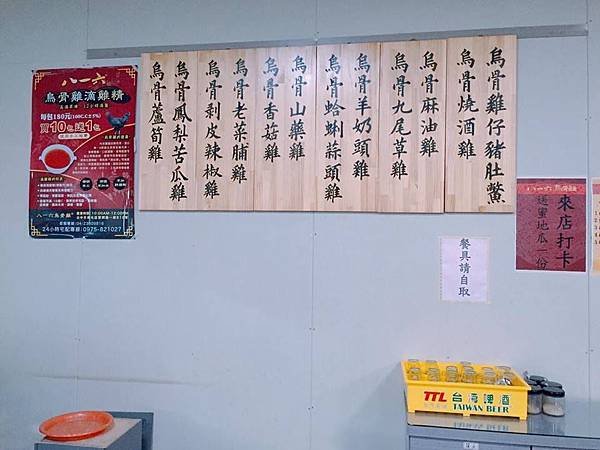 八一六
烏骨雞滴雞精
每包180元
買10包送1包
八一六烏骨雞
24小時宅配專線:0975-821027
烏骨雞仔豬肚鱉
烏骨燒酒雞
烏骨麻油雞
烏骨九尾草雞
烏骨羊奶頭雞
烏骨蛤蜊蒜頭雞
烏骨山藥雞
烏骨香菇雞
烏骨老菜脯雞
烏骨剝皮辣椒雞
烏骨鳳梨苦瓜雞
烏骨蘆筍雞
餐具請自取
八一六烏骨雞
來店打卡
送蜜地瓜一份
TTL 台灣啤酒
TAIWAN BEER